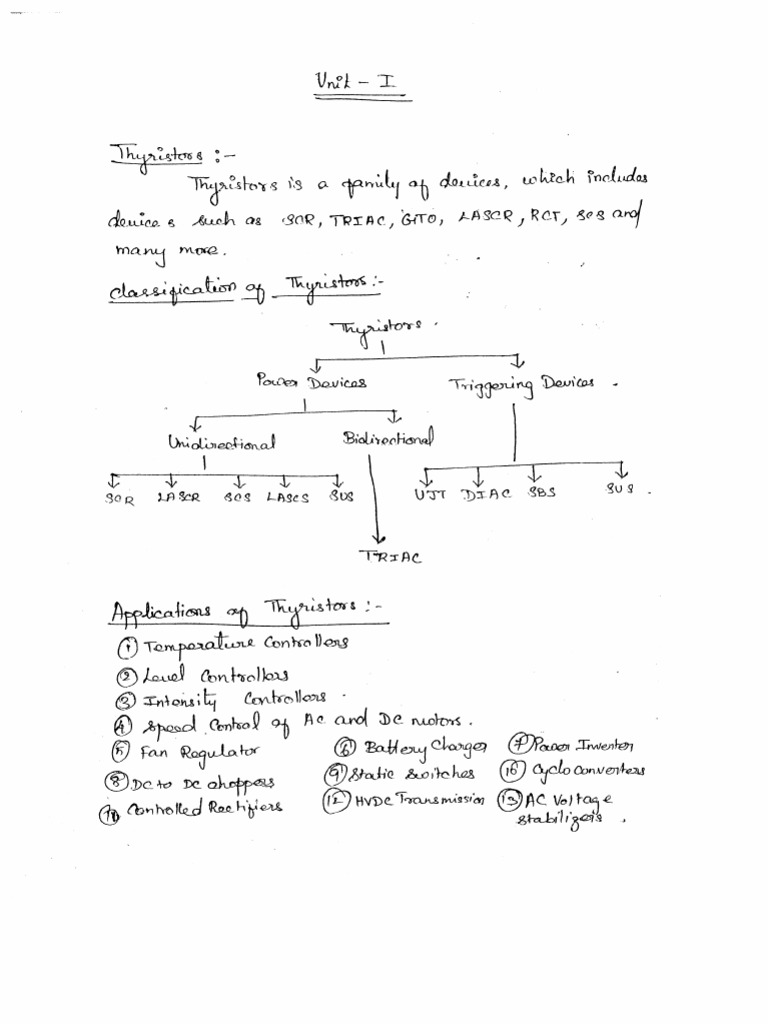 Unit - I
Thyristors :-
Thyristors is a family of devices, which includes
devices such as SCR, TRIAC, GTO, LASCR, RCT, SCS and
many more.
Classification of Thyristors:-
Thyristors.
Power Devices Triggering Devices.
Unidirectional Bidirectional
SCR LASCR SCS LASCS SUS UJT DIAC SBS SUS.
TRIAC
Applications of Thyristors :-
① Temperature Controllers
② Level Controllers
③ Intensity Controllers.
④ Speed Control of AC and DC motors.
⑤ Fan Regulator ⑥ Battery Charger ⑦ Power Inverter
⑧ DC to DC choppers ⑨ Static Switches ⑩ Cyclo Converters
⑪ Controlled Rectifiers ⑫ HVDC Transmission ⑬ AC Voltage
Stabilizers.